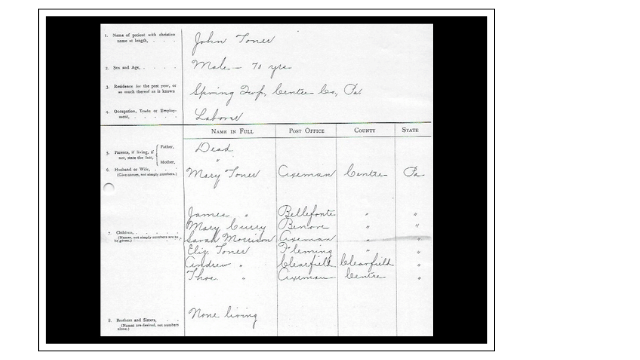 1. Name of patient with christian name at length, John Toner
2. Sex and Age, Male - 71 yrs
3. Residence for the past year, or as much thereof as is known Spring Twp, Centre Co, Pa
4. Occupation, Trade or Employment, Laborer
NAME IN FULL POST OFFICE COUNTY STATE
5. Parents, if living, if not, state the fact, Father, Dead
Mother, "
6. Husband or Wife, Mary Toner Axeman Centre Pa
James " Bellefonte " "
Mary Curry Benore " "
7. Children, Sarah Morrison Axeman " "
Eliz Toner Fleming " "
Andrew " Clearfield Clearfield "
Thos " Axeman Centre "
8. Brothers and Sisters, None living